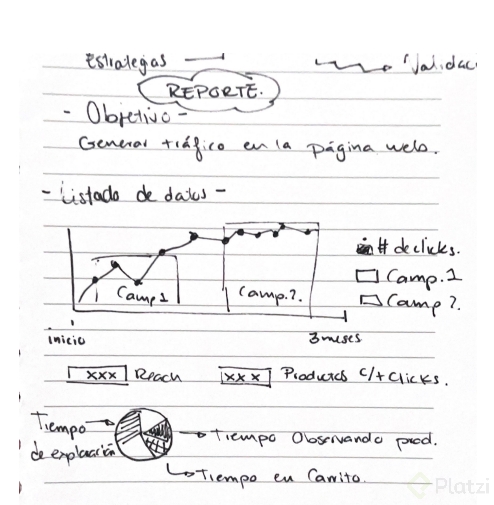 Estrategas
Validac
REPORTE.
- Objetivo -
Generar tráfico en la página web.
- Listado de datos -
# de clicks.
Camp. 1
Camp 2.
Camp 1
Camp. 2.
inicio
3 meses
xxx Reach
xxx Productos c/+ clicks.
Tiempo
de exploración
Tiempo Observando prod.
Tiempo en Carrito.
Platzi